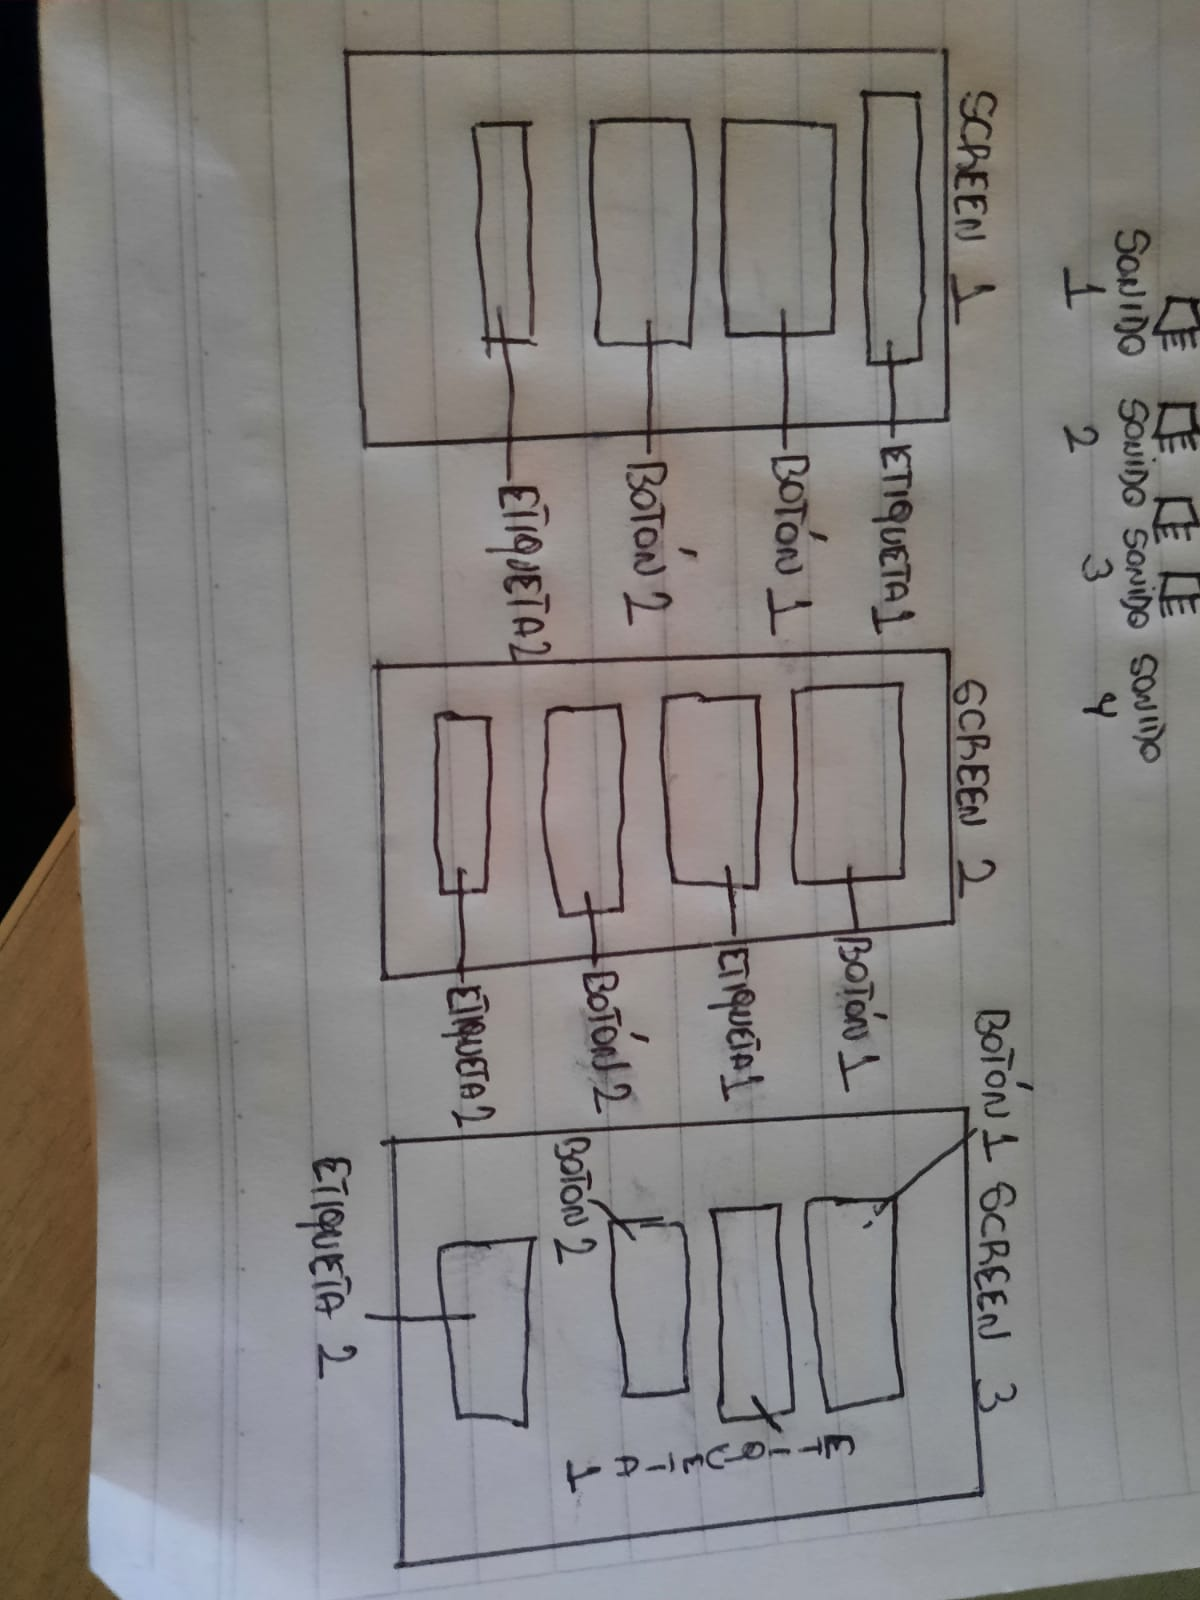 SONIDO SONIDO SONIDO SONIDO
1 2 3 4
SCREEN 1
ETIQUETA 1
BOTÓN 1
BOTÓN 2
ETIQUETA 2
SCREEN 2
BOTÓN 1
ETIQUETA 1
BOTÓN 2
ETIQUETA 2
BOTÓN 1 SCREEN 3
ETIQUETA 1
BOTÓN 2
ETIQUETA 2